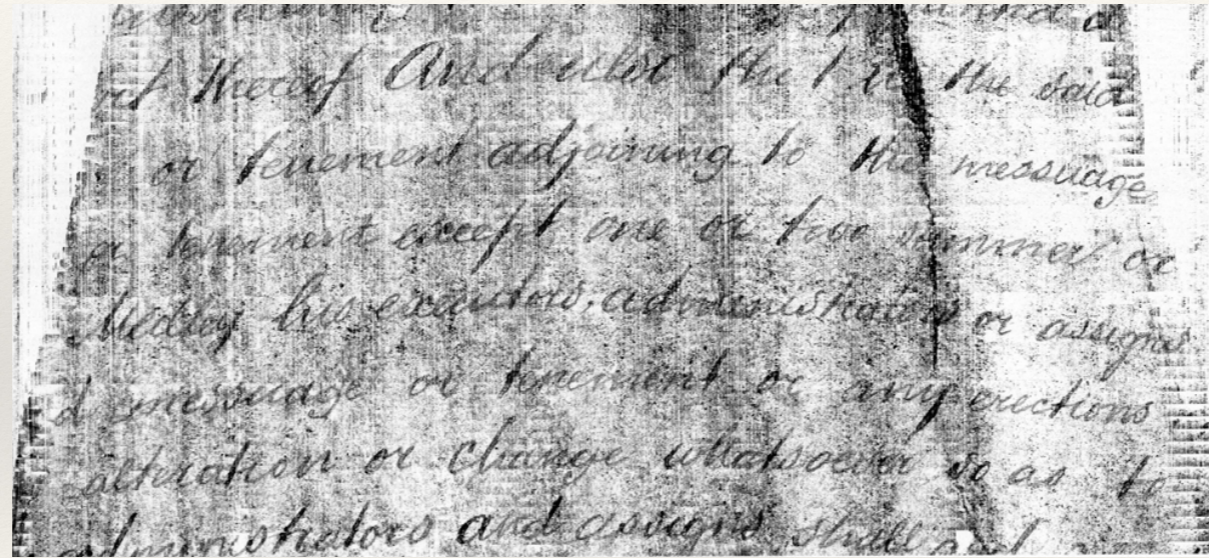 thereof And also the the said
or tenement adjoining to the messuage
or tenement except one or two summer or
his executors, administrators or assigns
messuage or tenement or any erections
alteration or change whatsoever so as to
administrators and assigns shall